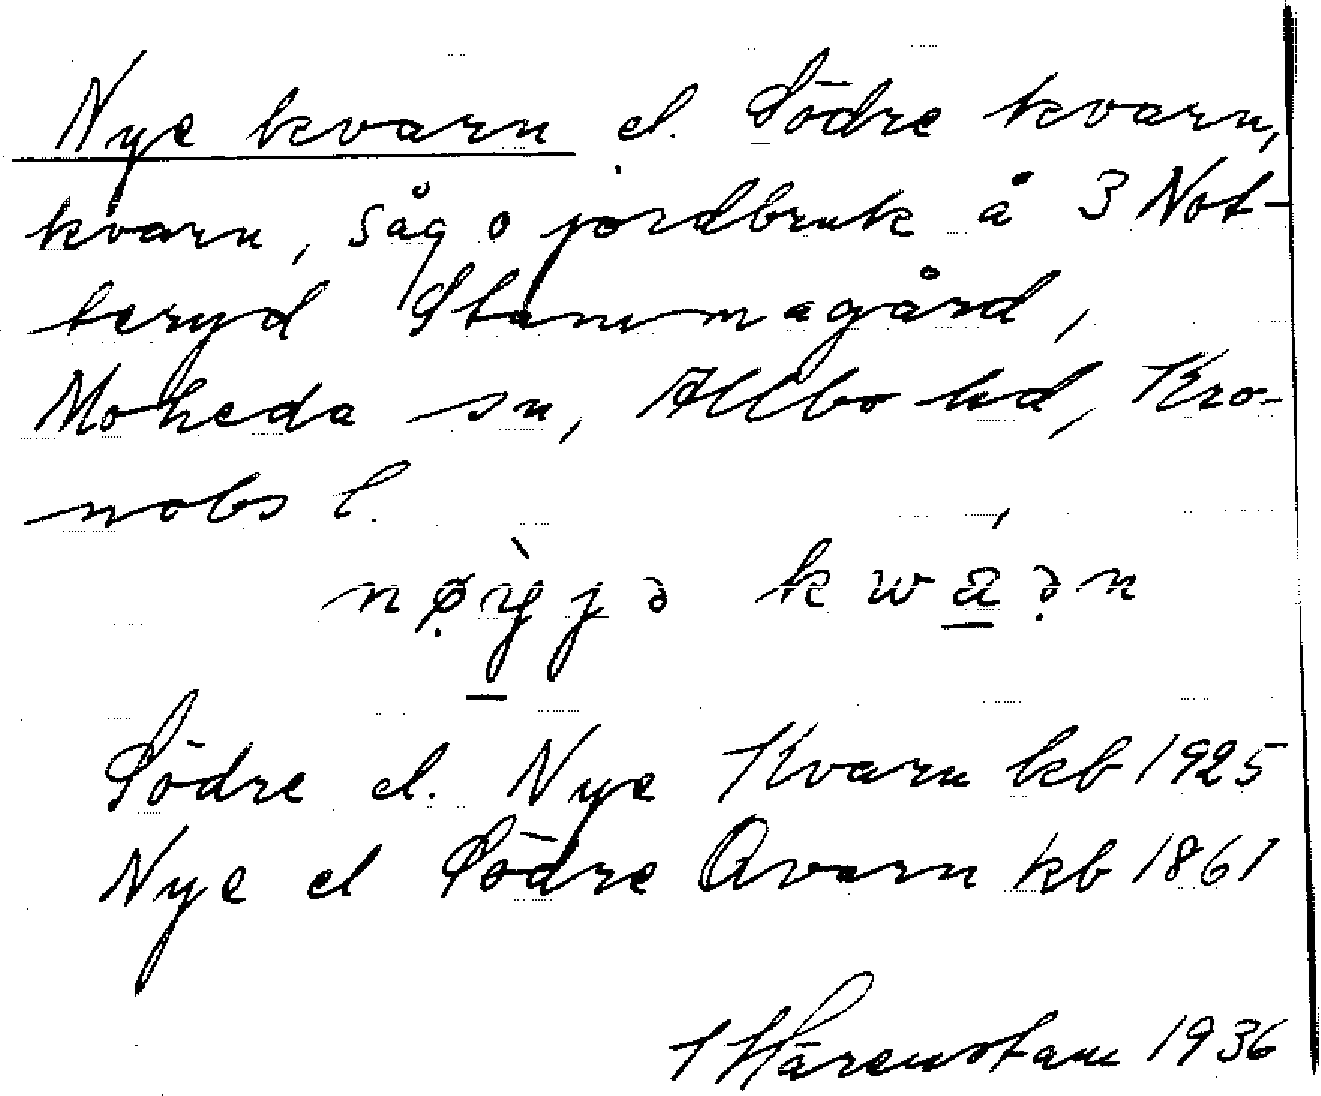 Nye kvarn el. Södre kvarn,
kvarn, såg o jordbruk å 3 Not-
teryd Stammagård,
Moheda sn, Allbo hd, Kro-
nobs l.
nø̣ỳjə kwa̲ə̣n
Södre el. Nye Kvarn kb 1925
Nye el Södre Qvarn kb 1861
Härenstam 1936